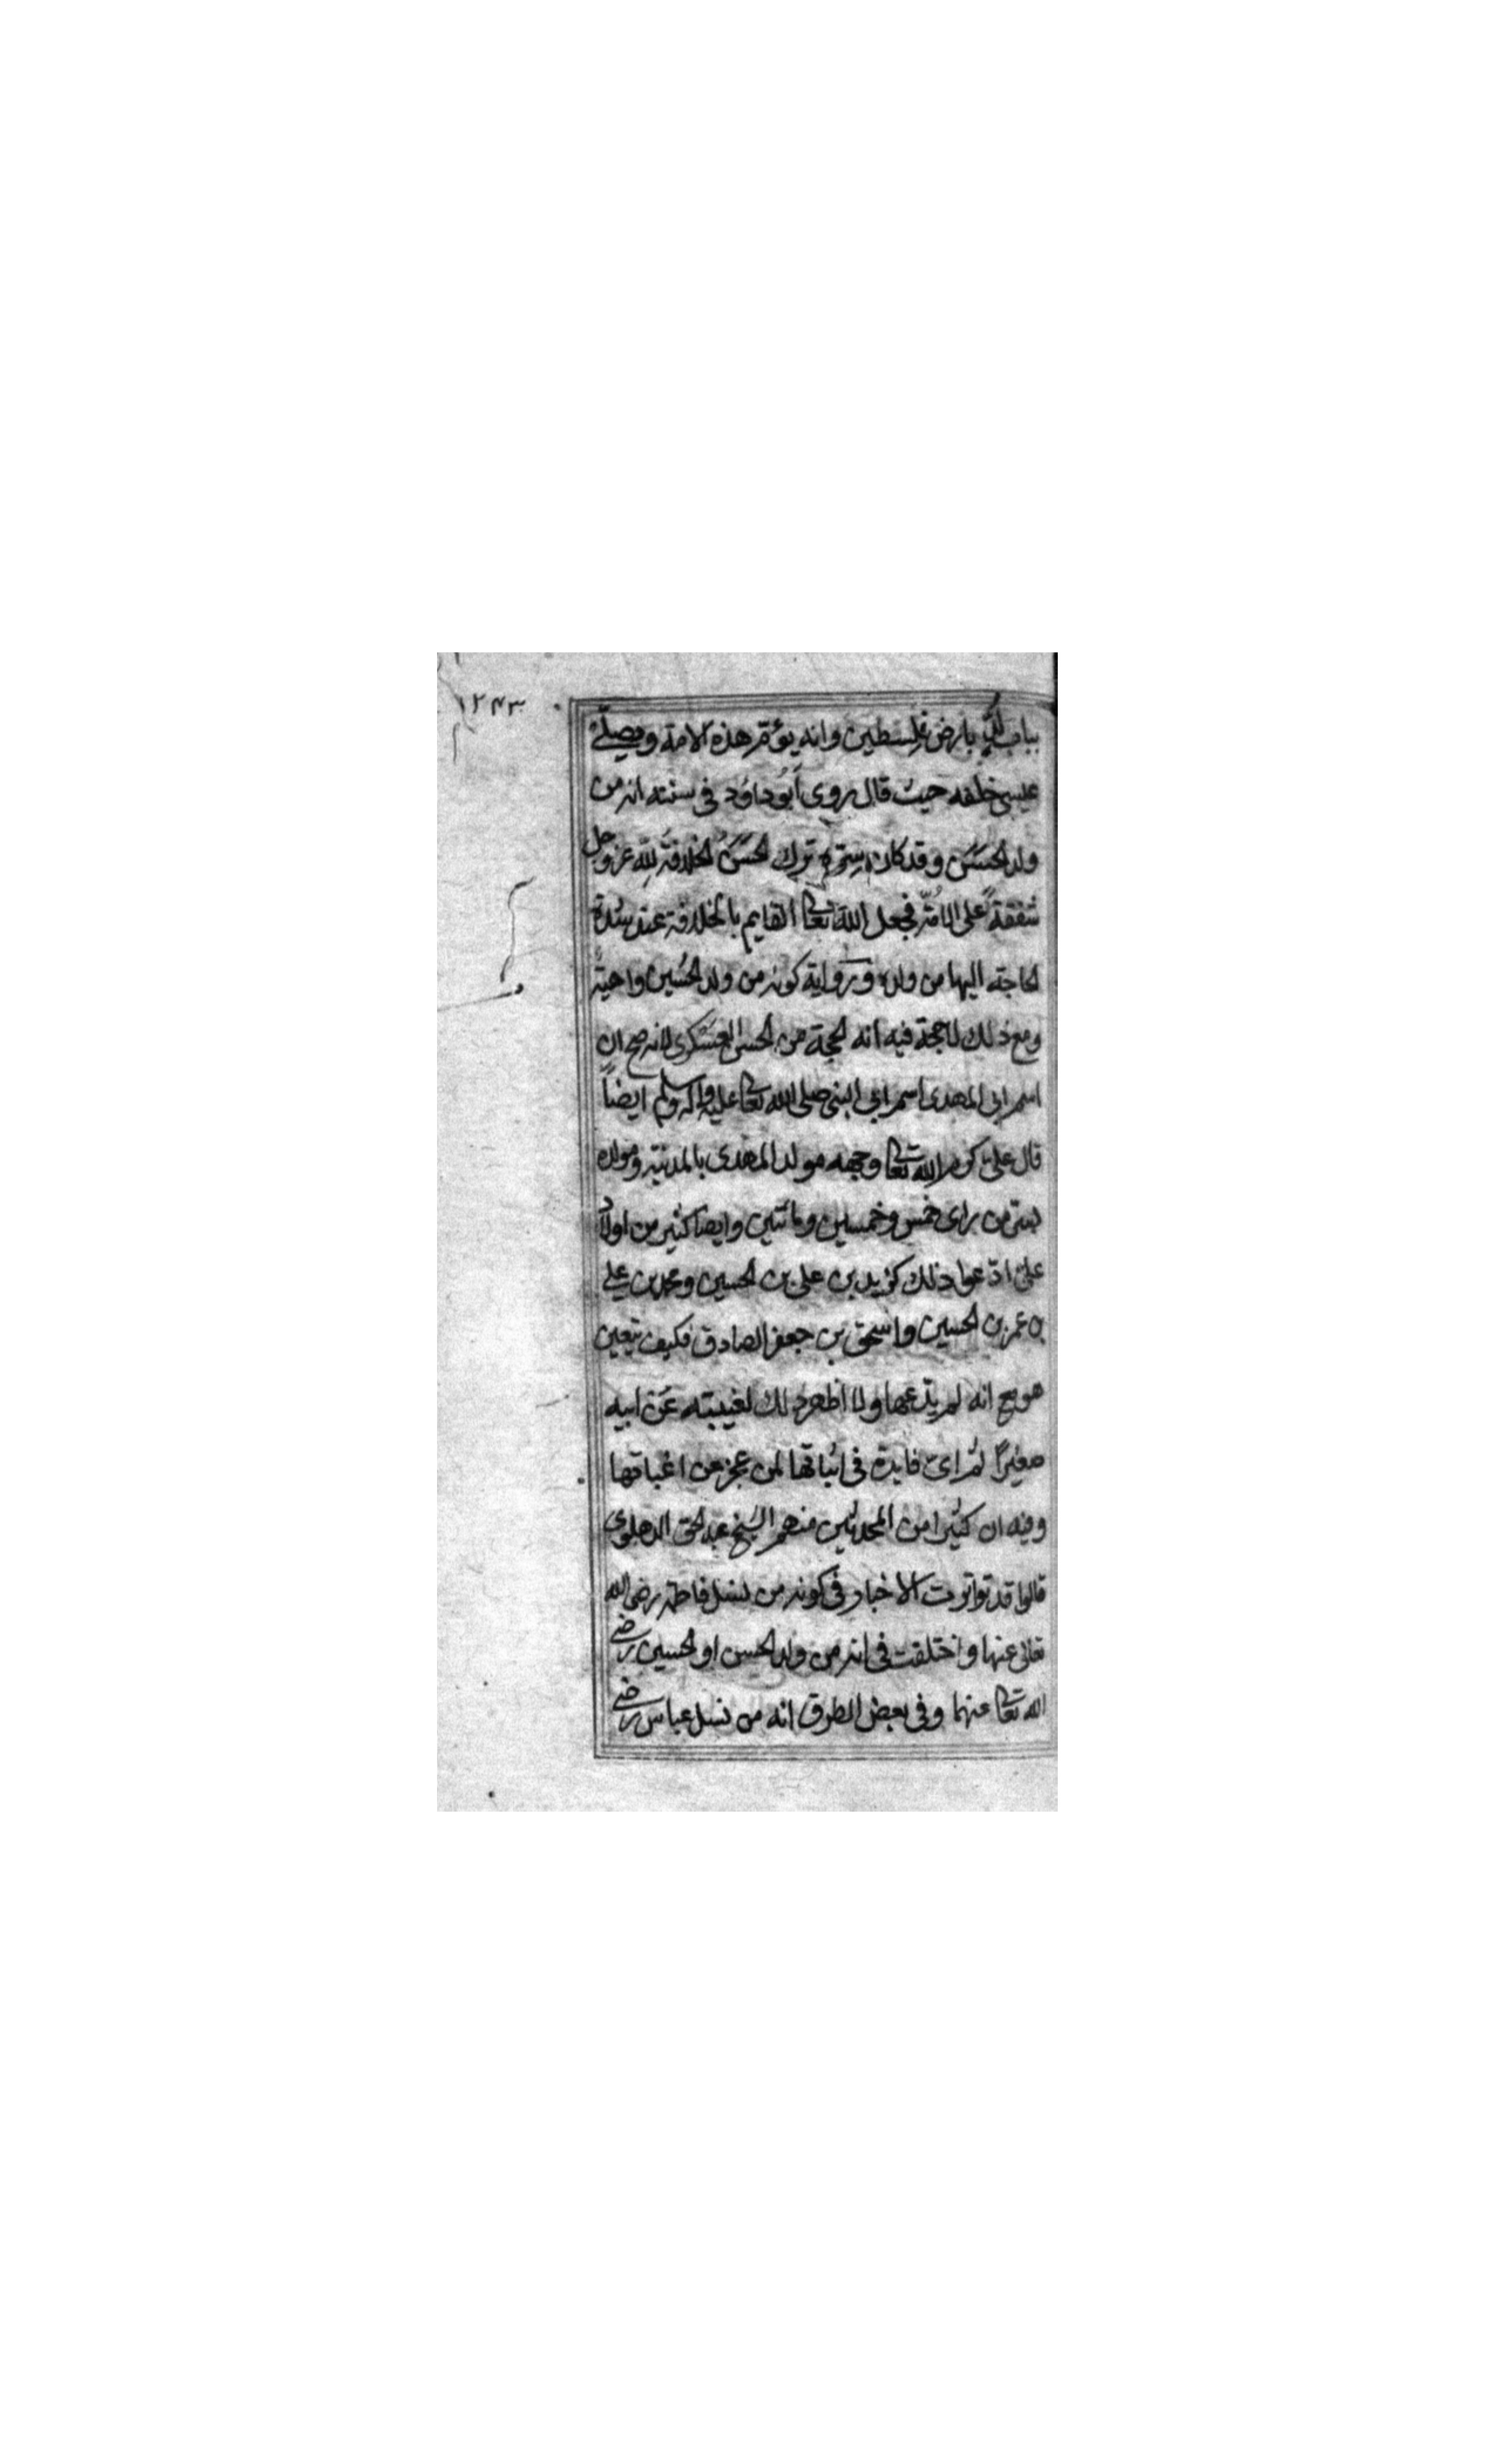 ١٢٤٣
بباب لُدّ بارض فلسطين وانه يؤم هذه الامة ويصلّے
عيسى خلفه حيث قال روى أبو داؤد فى سننه انه من
ولد الحَسَن وقد كان سرّه ترك الحَسَن الخلافة لِلّه عز وجل
شفقة على الامّة فجعل الله تعالى القايم بالخلافة عند شدة
الحاجة اليها من ولده ورواية كونه من ولد الحُسين واهيةٌ
ومع ذلك لا حجة فيه انه الحجة من الحسن العسكرى لانه صح ان
اسم ابى المهدى اسم ابى النبى صلى الله تعالى عليه واله وسلم ايضاً
قال على كرم الله تعالى وجهه مولد المهدى بالمدينة ومولده
بسرّ من راى خمس وخمسين ومائتين وايضا كثير من اولاد
علىّ ادّعوا ذلك كزيد بن على بن الحسين ومحمد بن على
بن عمر بن الحسين واسحق بن جعفر الصادق فكيف تعين
هو مع انه لم يدّعها ولا اظهر ذلك لغيبته عن ابيه
صغيرًا ثم اىّ فايدة فى اثباتها لمن عجز عن اغباقها
وفيه ان كثيرا من المحدثين منهم الشيخ عبد الحق الدهلوى
قالوا قد تواترت الاخبار فى كونه من نسل فاطمة رضى الله
تعالى عنها واختلفت فى انه من ولد الحسن او الحسين رضى
الله تعالى عنهما وفى بعض الطرق انه من نسل عباس رضى